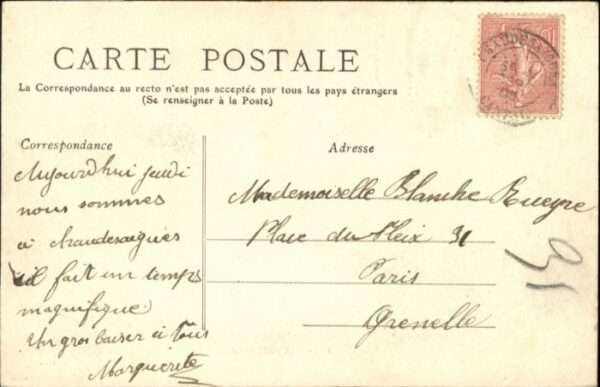 CARTE POSTALE
La Correspondance au recto n'est pas acceptée par tous les pays étrangers
(Se renseigner à la Poste)
Correspondance
Adresse
Aujourd'hui jeudi
nous sommes
à Chaudesaigues
il fait un temps
magnifique.
Un gros baiser à tous
Marguerite
Mademoiselle Blanche Rueyre
Place du 31
Paris
Grenelle
31